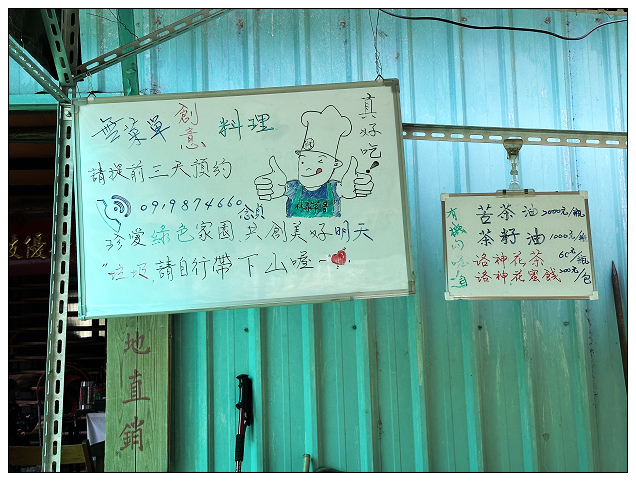 無菜單 創意 料理
真好吃!
請提前三天預約
0919874660
珍愛綠色家園,共創美好明天
"垃圾"請自行帶下山喔~
苦茶油 2000元/瓶
茶籽油 1000元/瓶
洛神花茶 60元/瓶
洛神花蜜餞 200元/包
優
地直銷